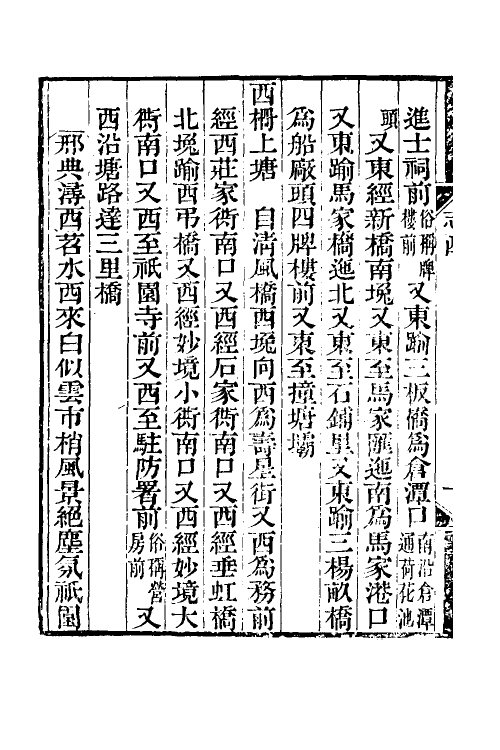 進士祠前俗稱牌樓前又東踰三板橋爲倉潭口南沿倉潭通荷花池
頭又東經新橋南堍又東至馬家匯迤南爲馬家港口
又東踰馬家橋迤北又東至石鋪里又東踰三楊畝橋
爲船廠頭四牌樓前又東至撞塘壩
西柵上塘　自淸風橋西堍向西爲壽星街又西爲務前
經西莊家衖南口又西經石家衖南口又西經垂虹橋
北堍踰西弔橋又西經妙境小衖南口又西經妙境大
衖南口又西至祇園寺前又西至駐防署前俗稱營房前又
西沿塘路達三里橋
邢典潯西苕水西來白似雲市梢風景絕塵氛祇園